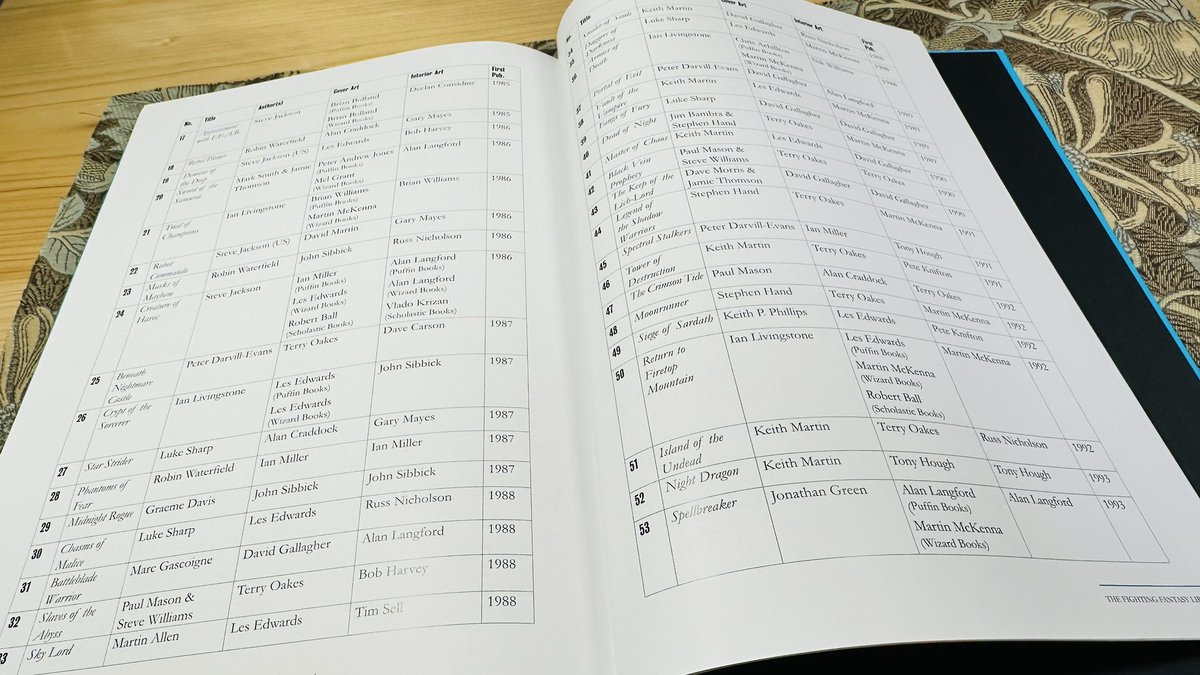 No. Title Author(s) Cover Art Interior Art First
Pub.
17 Appointment Steve Jackson Brian Bolland Declan Considine 1985
with F.E.A.R. (Puffin Books)
Brian Bolland
(Wizard Books)
18 Rebel Planet Robin Waterfield Alan Craddock Gary Mayes 1985
19 Demons of Steve Jackson (US) Les Edwards Bob Harvey 1986
the Deep
20 Sword of the Mark Smith & Jamie Peter Andrew Jones Alan Langford 1986
Samurai Thomson (Puffin Books)
Mel Grant
(Wizard Books)
21 Trial of Ian Livingstone Brian Williams Brian Williams 1986
Champions (Puffin Books)
Martin McKenna
(Wizard Books)
22 Robot Steve Jackson (US) David Martin Gary Mayes 1986
Commando
23 Masks of Robin Waterfield John Sibbick Russ Nicholson 1986
Mayhem
24 Creature of Steve Jackson Ian Miller Alan Langford 1986
Havoc (Puffin Books) (Puffin Books)
Les Edwards Alan Langford
(Wizard Books) (Wizard Books)
Robert Ball Vlado Krizan
(Scholastic Books) (Scholastic Books)
25 Beneath Peter Darvill-Evans Terry Oakes Dave Carson 1987
Nightmare
Castle
26 Crypt of the Ian Livingstone Les Edwards John Sibbick 1987
Sorcerer (Puffin Books)
Les Edwards
(Wizard Books)
27 Star Strider Luke Sharp Alan Craddock Gary Mayes 1987
28 Phantoms of Robin Waterfield Ian Miller Ian Miller 1987
Fear
29 Midnight Rogue Graeme Davis John Sibbick John Sibbick 1987
30 Chasms of Luke Sharp Les Edwards Russ Nicholson 1988
Malice
31 Battleblade Marc Gascoigne David Gallagher Alan Langford 1988
Warrior
32 Slaves of the Paul Mason & Terry Oakes Bob Harvey 1988
Abyss Steve Williams
33 Sky Lord Martin Allen Les Edwards Tim Sell 1988
No. Title Cover Art Interior Art First
Pub.
34 Stealer of Souls Keith Martin David Gallagher Russ Nicholson 1988
35 Daggers of Luke Sharp Les Edwards Martin McKenna 1988
Darkness
36 Armies of Ian Livingstone Chris Achilleos Nik Williams 1988
Death (Puffin Books)
Martin McKenna
(Wizard Books)
37 Portal of Evil Peter Darvill-Evans David Gallagher Alan Langford 1989
38 Vault of the Keith Martin Les Edwards Martin McKenna 1989
Vampire
39 Fangs of Fury Luke Sharp David Gallagher David Gallagher 1989
40 Dead of Night Jim Bambra & Terry Oakes Martin McKenna 1989
Stephen Hand
41 Master of Chaos Keith Martin Les Edwards David Gallagher 1990
42 Black Vein Paul Mason & Terry Oakes Terry Oakes 1990
Prophecy Steve Williams
43 The Keep of the Dave Morris & David Gallagher David Gallagher 1990
Lich-Lord Jamie Thomson
44 Legend of Stephen Hand Terry Oakes Martin McKenna 1991
the Shadow
Warriors
45 Spectral Stalkers Peter Darvill-Evans Ian Miller Tony Hough 1991
46 Tower of Keith Martin Terry Oakes Pete Knifton 1991
Destruction
47 The Crimson Tide Paul Mason Alan Craddock Terry Oakes 1992
48 Moonrunner Stephen Hand Terry Oakes Martin McKenna 1992
49 Siege of Sardath Keith P. Phillips Les Edwards Pete Knifton 1992
50 Return to Ian Livingstone Les Edwards Martin McKenna 1992
Firetop (Puffin Books)
Mountain Martin McKenna
(Wizard Books)
Robert Ball
(Scholastic Books)
51 Island of the Keith Martin Terry Oakes Russ Nicholson 1992
Undead
52 Night Dragon Keith Martin Tony Hough Tony Hough 1993
53 Spellbreaker Jonathan Green Alan Langford Alan Langford 1993
(Puffin Books)
Martin McKenna
(Wizard Books)
THE FIGHTING FANTASY